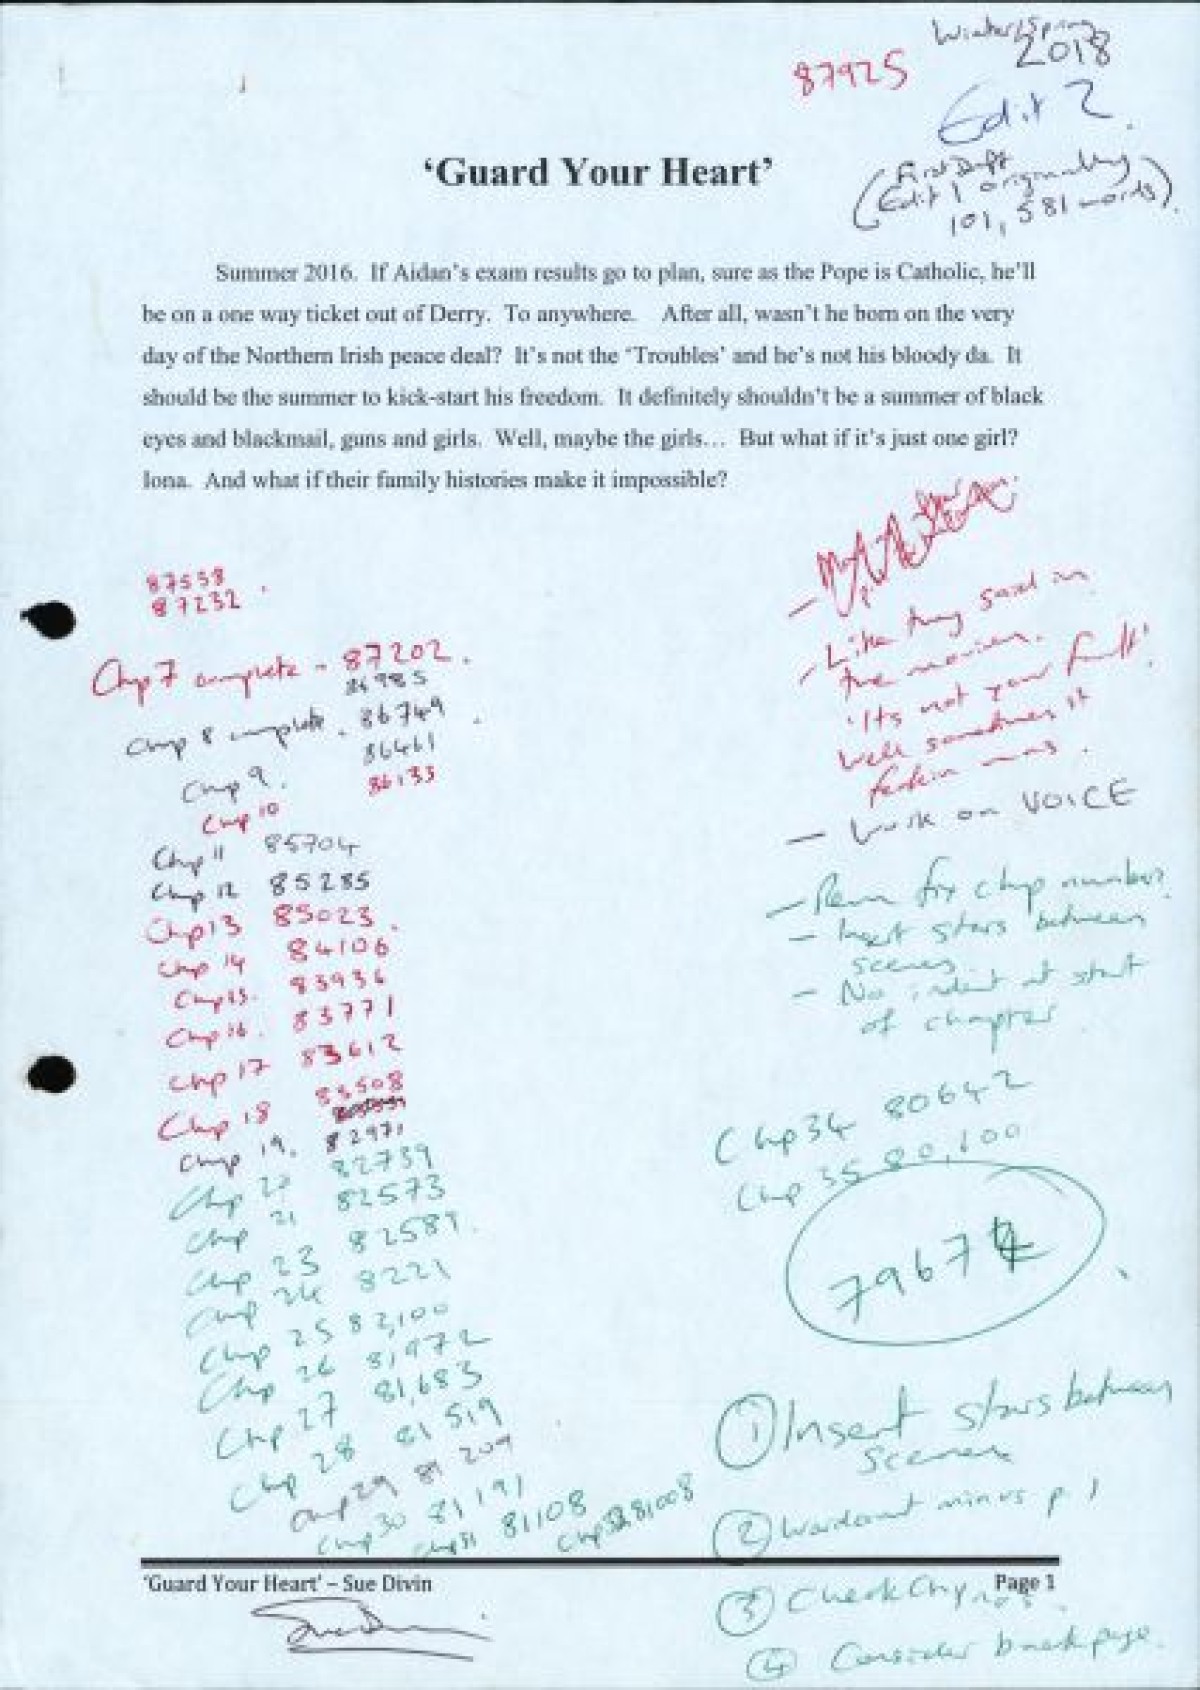 Winter/Spring
2018
87925
Edit 2.
(First Draft
Edit 1 originally
101,581 words).
‘Guard Your Heart’
Summer 2016. If Aidan’s exam results go to plan, sure as the Pope is Catholic, he’ll
be on a one way ticket out of Derry. To anywhere. After all, wasn’t he born on the very
day of the Northern Irish peace deal? It’s not the ‘Troubles’ and he’s not his bloody da. It
should be the summer to kick-start his freedom. It definitely shouldn’t be a summer of black
eyes and blackmail, guns and girls. Well, maybe the girls… But what if it’s just one girl?
Iona. And what if their family histories make it impossible?
87538
87232.
Chp 7 complete - 87202.
86985
Chp 8 complete. 86749.
86461
Chp 9.
86133
Chp 10
Chp 11 85704
Chp 12 85285
Chp 13 85023.
Chp 14 84106
Chp 15. 83936
Chp 16. 83771
Chp 17 83612
Chp 18 83508
Chp 19. 82971
Chp 20 82739
Chp 21 82573
Chp 23 82589.
Chp 24 8221
Chp 25 82,100
Chp 26 81,972
Chp 27 81,683
Chp 28 81519
Chp 29 81209
Chp 30 81191
Chp 31 81108
Chp 32 81008
- Like they said in
the movies.
'Its not your fault'.
Well sometimes it
feckin was.
- Work on VOICE
- Rem fix chap numbers.
- Insert stars between
scenes
- No indent at start
of chapter
Chp 34 80642
Chp 35 80,100
79674
① Insert stars between
scenes
② Wordcount minus p. 1
③ Check Chp nos.
④ Consider back page.
‘Guard Your Heart’ – Sue Divin
Page 1
Sue Divin